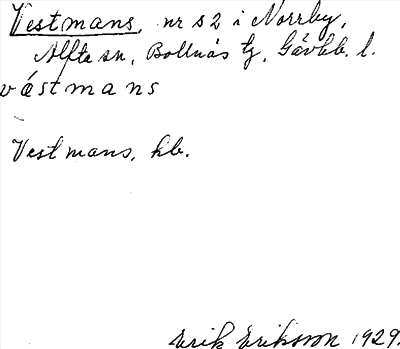 Vestmans, nr s2 i Norrby,
Alfta sn, Bollnäs tg, Gävleb. l.
västmans
Vestmans, kb.
Erik Erikson 1929.